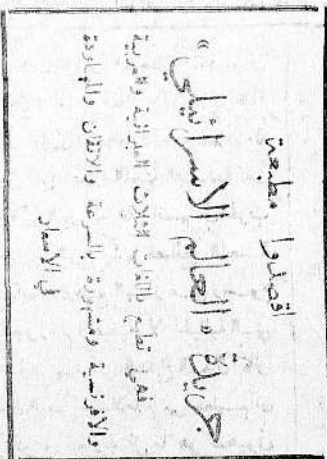 اقصدوا مطبعة
جريدة «العالم الاسرائيلي»
فهي تطبع باللغات الثلاث العبرانية والعربية
والافرنسية ومشهورة بالسرعة والاتقان والمهاودة
في الاسعار